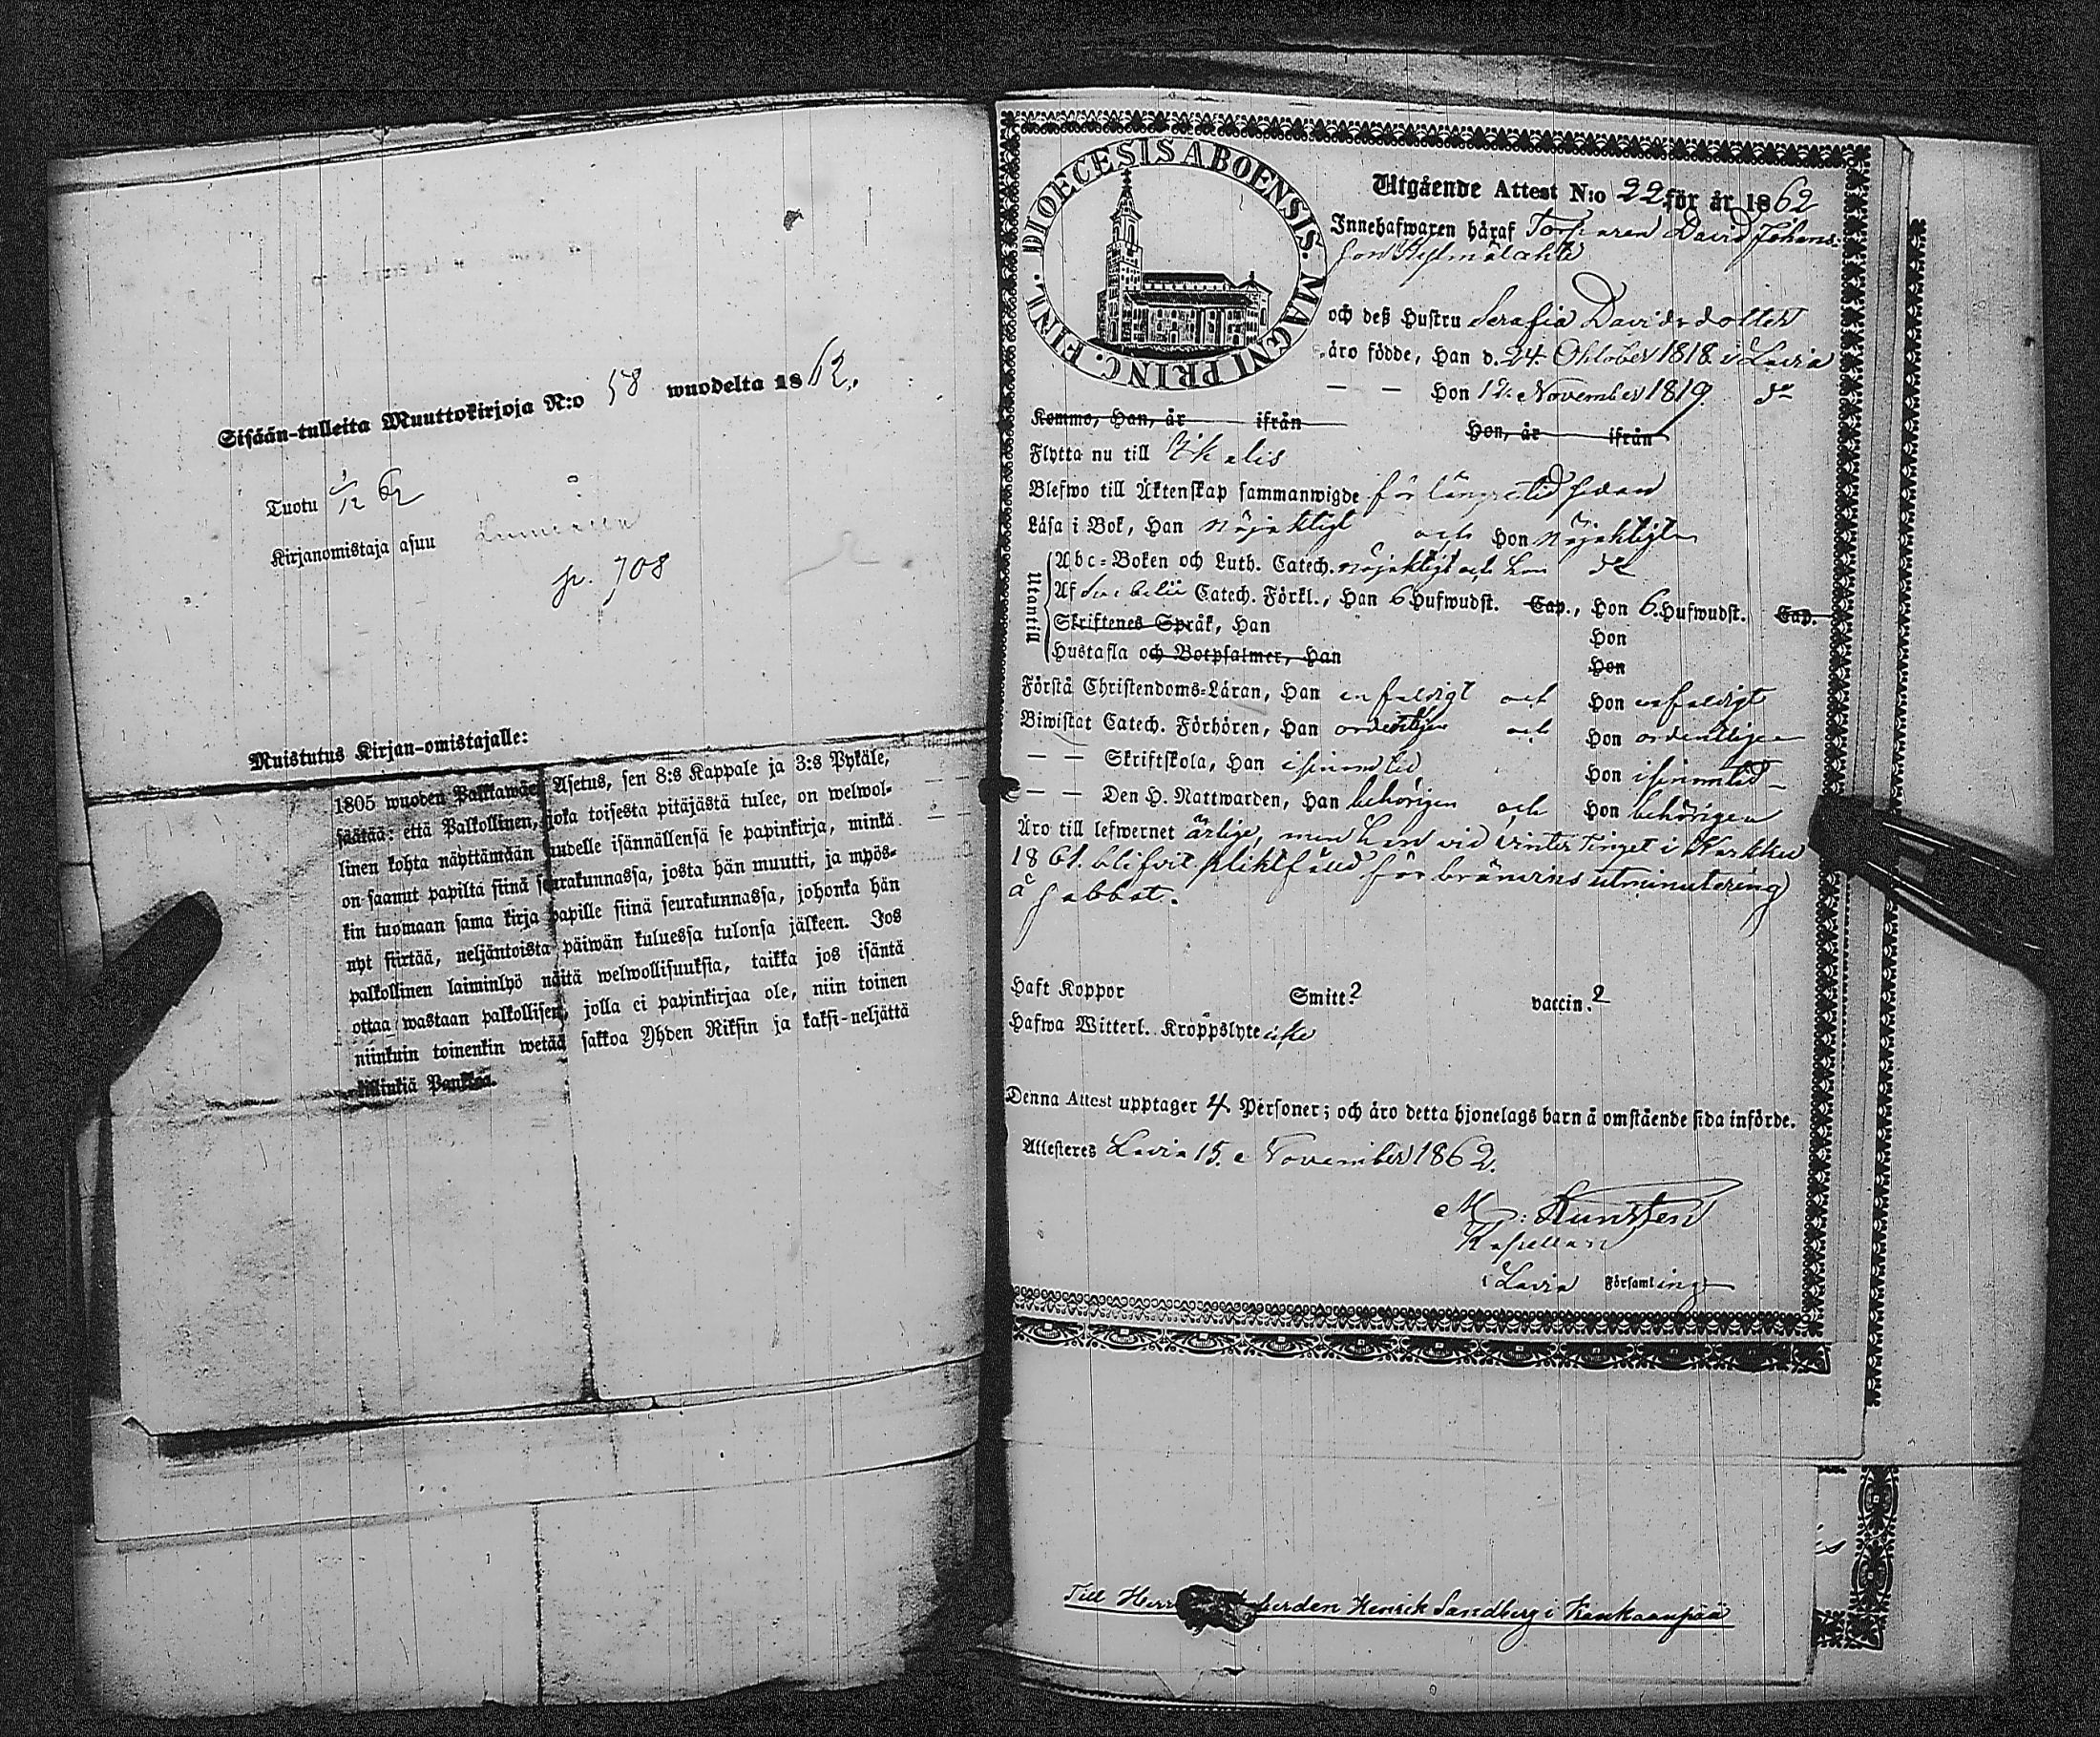 Sisään-tulleita Muuttokirjoja N:o 58 wuodelta 1862.
Tuotu 1/12 62
Kirjanomistaja asuu
p. 708
Muistutus Kirjan-omistajalle:
1805 wuoden Palkkawäen Asetus, sen 8:s Kappale ja 3:s Pykäle,
säätää: että Palkollinen, joka toisesta pitäjästä tulee, on welwol-
linen kohta näyttämään uudelle isännällensä se papinkirja, minkä
on saanut papilta siinä seurakunnassa, josta hän muutti, ja myös-
kin tuomaan sama kirja papille siinä seurakunnassa, johonka hän
nyt siirtää, neljäntoista päiwän kuluessa tulonsa jälkeen. Jos
palkollinen laiminlyö näitä welwollisuuksia, taikka jos isäntä
ottaa wastaan palkollisen, jolla ei papinkirjaa ole, niin toinen
niinkuin toinenkin wetää sakkoa Yhden Riksin ja kaksi-neljättä
killinkiä Pankkoa.
DIOECESIS ABOENSIS. MAGNI PRINC. FINL.
Utgående Attest N:o 22 för år 1862
Innehafwaren häraf Torparen David Johans-
son
och deß Hustru Serafia Davidsdotter
äro födde, Han d. 24 Oktober 1818 i Lavia
— — Hon 12 November 1819. do
Komme, Han, år ifrån Hon, år ifrån
Flytta nu till Ikalis
Blefwo till Äktenskap sammanwigde för längre tid sedan
Läsa i Bok, Han nöjaktigt och Hon nöjaktigt
Utantill
Abc-Boken och Luth. Catech. nöjaktigt och hon do
Af Svebelii Catech. Förkl., Han 6 Hufwudst. Cap., Hon 6. Hufwudst. Cap.
Skriftenes Språk, Han Hon
Hustafla och Botpsalmer, Han Hon
Förstå Christendoms-Läran, Han enfaldigt och Hon enfaldigt
Biwistat Catech. Förhören, Han ordentligen och Hon ordentligen
— — Skriftskola, Han i sinom tid Hon i sinom tid
— — Den H. Nattwarden, Han behörigen och Hon behörigen
Äro till lefwernet ärlige, men han vid vinter Tinget i Karkku
1861 blifvit pliktfäld för bränvins utminutering
å sabbat.
Haft Koppor Smitt? vaccin. ?
Hafwa Witterl. Kroppslyte icke
Denna Attest upptager 4 Personer; och äro detta hjonelags barn å omstående sida införde.
Attesteres Lavia 15. November 1862.
Kapellan
i Lavia Församling
Till Herr Henrik Sandberg i Kankaanpää